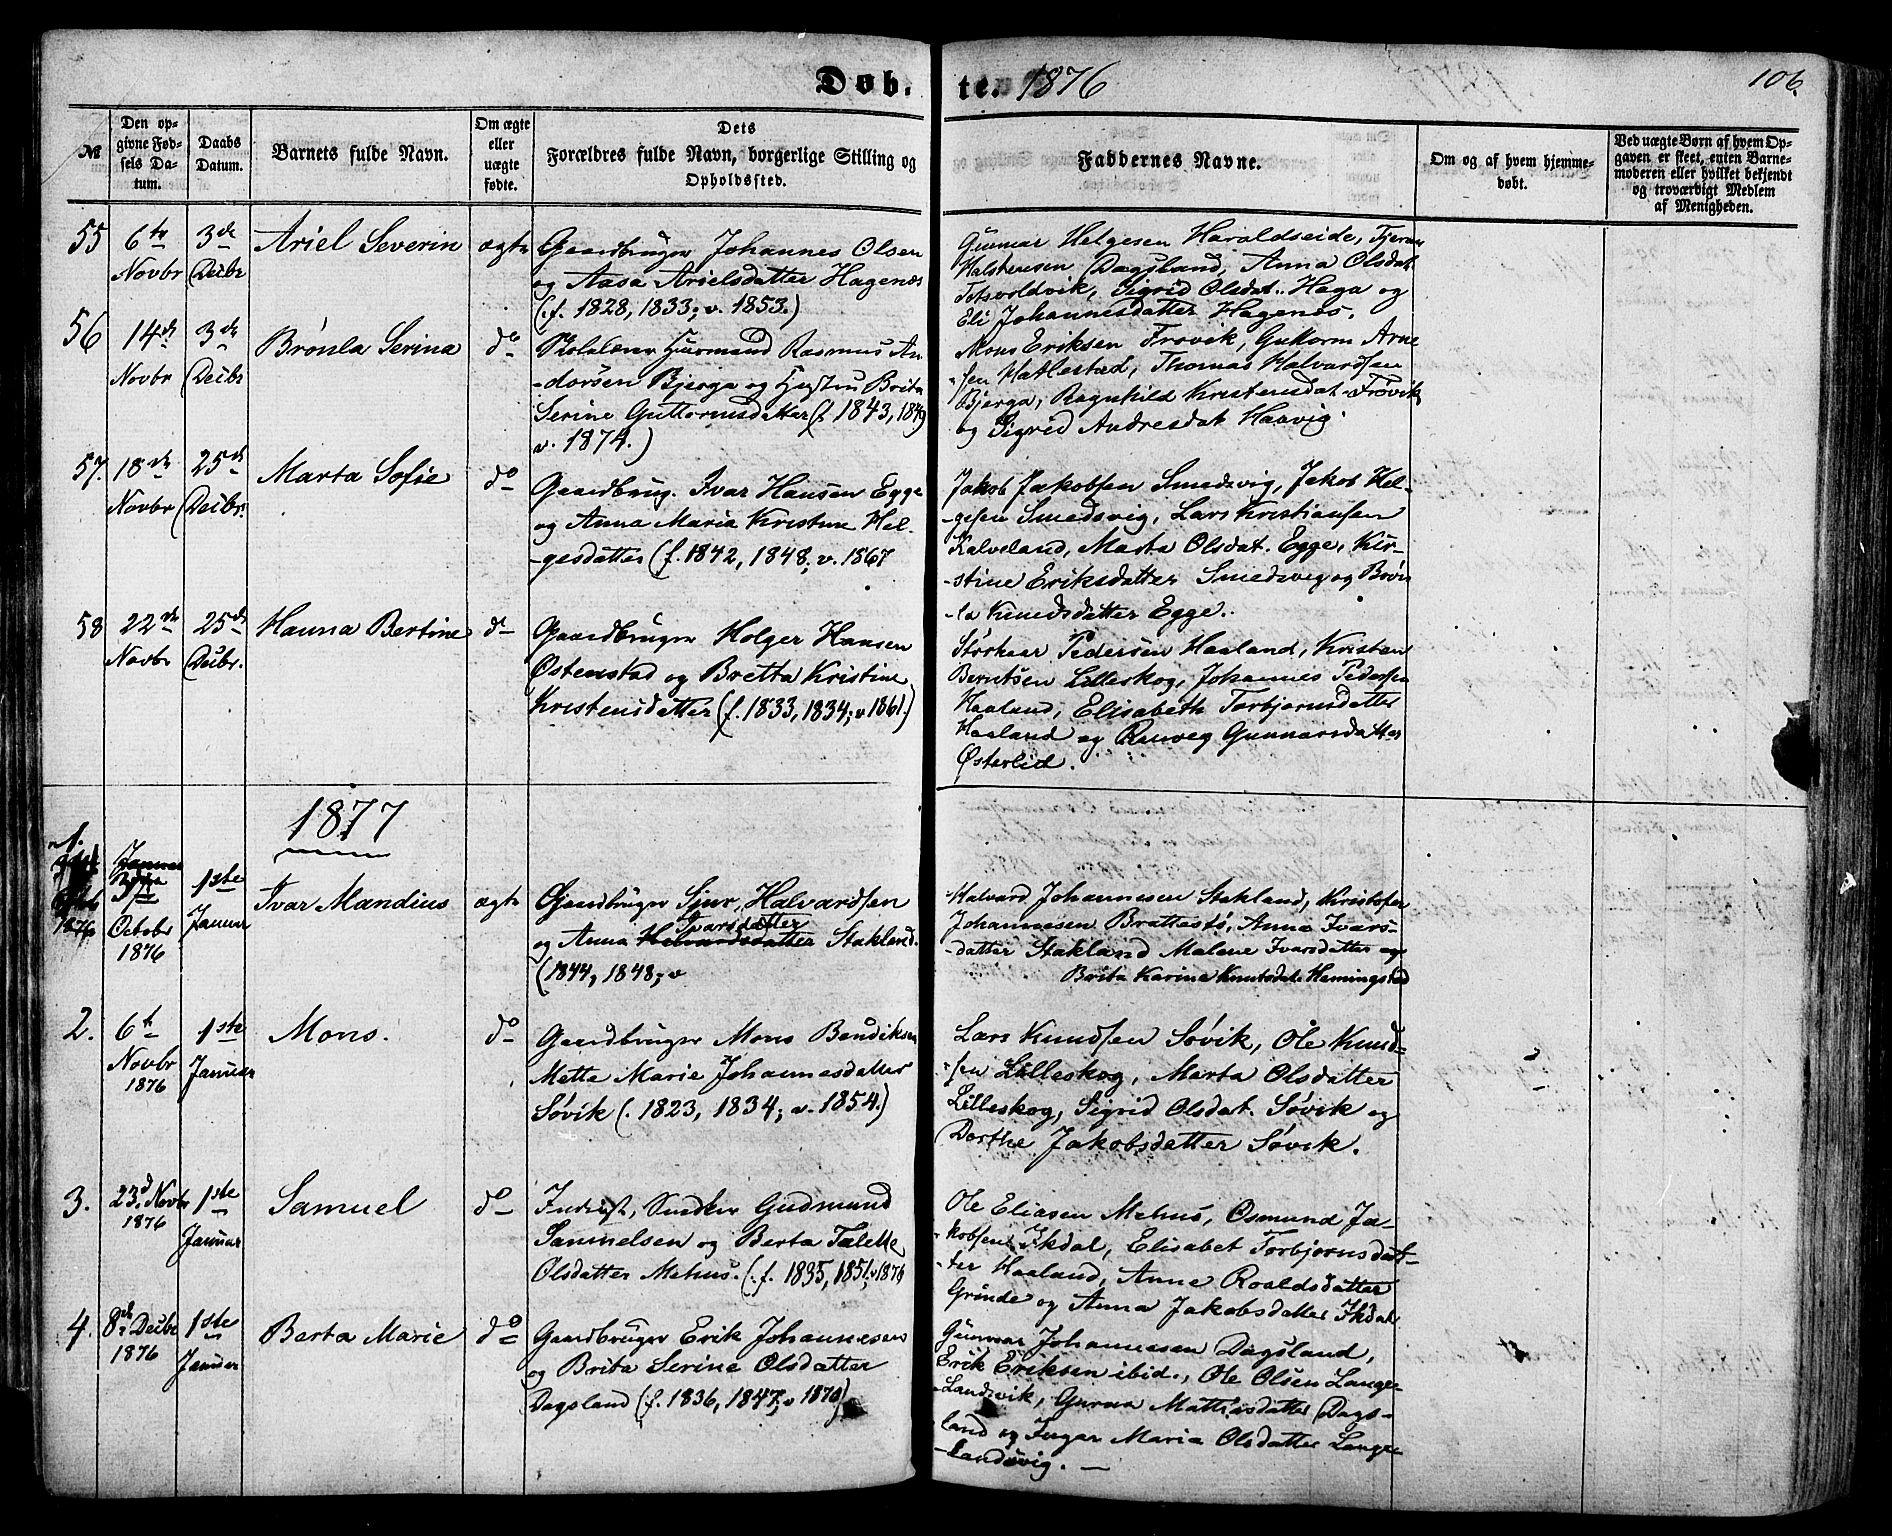 Døb. te. 1876
106.
№
Den opgivne Fødsels Datum.
Daabs Datum.
Barnets fulde Navn.
Om ægte eller uægte fødte.
Dets Forældres fulde Navn, borgerlige Stilling og Opholdssted.
Faddernes Navne.
Om og af hvem hjemmedøbt.
Ved uægte Børn af hvem Opgaven er skeet, enten Barnemoderen eller hvilket bekjendt og troværdigt Medlem af Menigheden.
55 6te Novbr 3de Decbr Ariel Severin ægte
Gaardbruger Johannes Olsen
og Aasa Arielsdatter Hagenæs
(f. 1828, 1833; v. 1853.)
Gunnar Helgesen Haraldseide,
Halstensen Dagsland, Anna Olsdat.
Totsvoldvik, Sigrid Olsdat. Haga og
Eli Johannesdatter Hagenes.
56 14de Novbr 3de Decbr Brønla Serina do
Skolelærer Huusmand Rasmus An-
-dersen Bjerga og Hustru Brita
Serine Guttormsdatter (f. 1843, 1849
v. 1874.)
Mons Eriksen Frøvik, Guttorm Arne
-sen Hatlestad, Thomas Halvardsen
Bjerga, Ragnhild Kristensdat. Frøvik
og Sigrid Andresdat Haavig
57. 18de Novbr 25de Decbr. Marta Sofie do
Gaardbrug. Ivar Hansen Egge
og Anna Maria Kristine Hel-
-gesdatter (f. 1842, 1848; v. 1867
Jakob Jakobsen Smedsvig, Jakob Hel-
-gesen Smedsvig, Lars Kristiansen
Kalveland, Marta Olsdat. Egge, Kir-
-stine Eriksdatter Smedsvig og Brøn
-la Knudsdatter Egge.
58 22de Novbr 25de Decbr. Hanna Bertine do
Gaardbruger Holger Hansen
Østenstad og Bretta Kristine
Kristensdatter (f. 1833, 1834; v 1861.)
Størkaar Pedersen Haaland, Kristen
Berntsen Lilleskog, Johannes Pedersen
Haaland, Elisabeth Torbjørnsdatter
Haaland og Ranveg Gunnarsdatter
Østerlid.
1877
1. 1876
Octobr 1876 1ste Januar Ivar Mandius ægte
Gaardbruger Sjur Halvardsen
Ivarsdatter
og Anna Stakland.
(1844, 1848; v
Halvard Johannesen Stakland, Kristofer
Johannesen Brattestø, Anna Ivars-
-datter Stakland Malene Ivarsdatter og
Brita Karina Knutsdat. Hemingstad
2. 6te Novbr 1876 1ste Januar Mons. do
Gaardbruger Mons Bendiksen
Metta Marie Johannesdatter
Søvik (. 1823, 1834; v. 1854.)
Lars Knudsen Søvik, Ole Knud-
-sen Lilleskog, Marta Olsdatter
Lilleskog, Sigrid Olsdat. Søvik og
Dorthe Jakobsdatter Søvik.
3. 23d Novbr 1876 1ste Januar Samuel do
Inderst, Snedker Gudmund
Samuelsen og Berta Talette
Olsdatter Mehus. (f. 1835, 1851; v 1876
Ole Eliasen Mehus, Osmund Ja-
-kobsen Ikdal, Elisabet Torbjørnsdat-
-ter Haaland, Anne Roaldsdatter
Grinde og Anna Jakobsdatter Ikdal
4. 8de Decbr 1876 1ste Januar Berta Marie do
Gaardbruger Erik Johannesen
og Brita Serine Olsdatter
Dagsland (f. 1836, 1847; v 1870)
Gunnar Johannesen Dagsland,
Erik Eriksen ibid., Ole Olsen Lange-
-Landsvik, Gurina Mathiasdatter Dags-
-land og Ingar Maria Olsdatter Lange
-landsvig. —